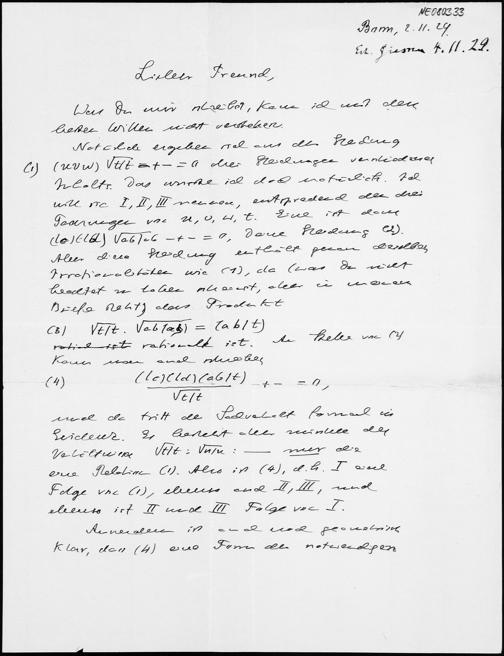 NE080333
Bonn, 2.11.29
Erh. Giessen 4.11.29.
Lieber Freund,
Was Du mir schreibst, kann ich mit dem
besten Willen nicht verstehen.
Natürlich ergeben sich aus der Gleichung
(1) (uvw) √t/t -+- = 0 drei Gleichungen verschiedenen
Inhalts. Das wusste ich doch natürlich. Ich
will sie I, II, III nennen, entsprechend den drei
Paarungen von u, v, w, t. Eine ist dann
(bc)(bd) √ab/ab -+- = 0, Deine Gleichung (2).
Aber diese Gleichung enthält genau dieselben
Irrationalitäten wie (1), da (was Du nicht
beachtet zu haben scheinst, aber in meinem
Briefe steht) das Produkt
(3) √t/t . √ab(ab) = (ab/t)
rational ist. An Stelle von (2)
kann man auch schreiben
(4) (bc)(bd)(ab/t) / √t/t -+- = 0,
und da tritt der Sachverhalt formal in
Evidenz. Es besteht aber zwischen den
Verhältnissen √t/t : √u/u : — nur die
eine Relation (1). Also ist (4), d.h. I eine
Folge von (1), ebenso auch II, III, und
ebenso ist II und III Folge von I.
Ausserdem ist auch noch geometrisch
klar, dass (4) eine Form der notwendigen